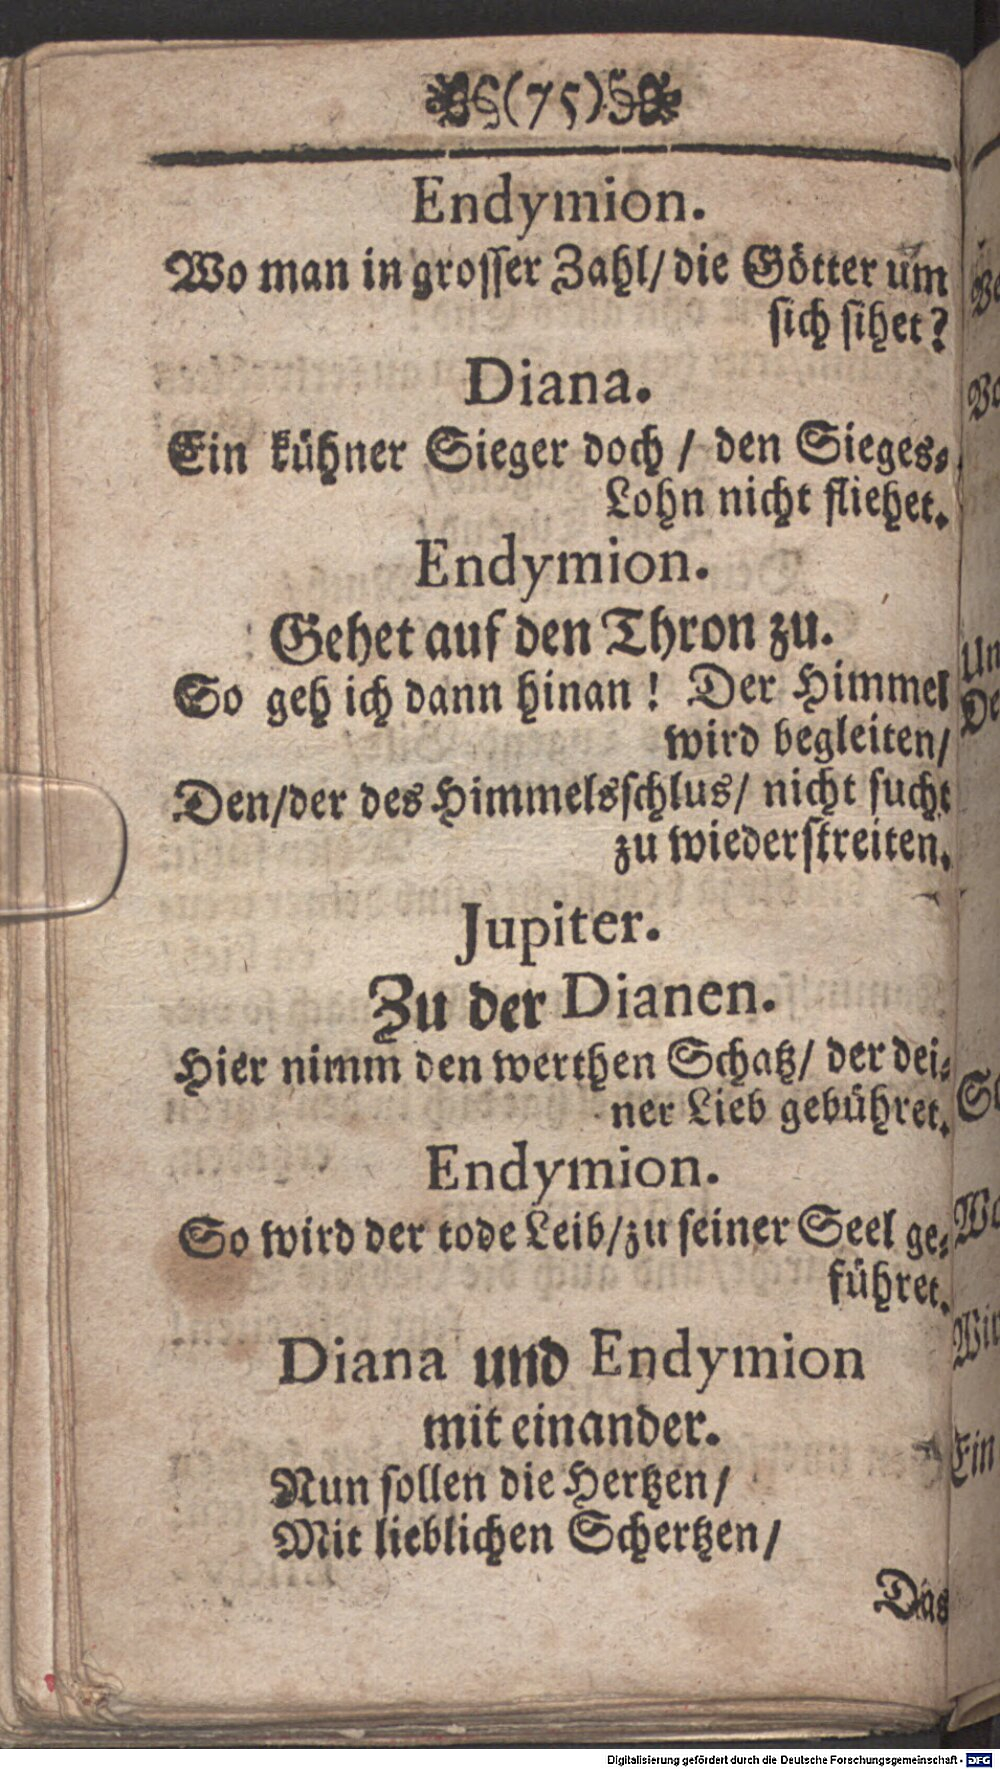 (75)
Endymion.
Wo man in grosser Zahl/ die Götter um
sich sihet?
Diana.
Ein kühner Sieger doch / den Sieges-
Lohn nicht fliehet.
Endymion.
Gehet auf den Thron zu.
So geh ich dann hinan! Der Himmel
wird begleiten/
Den/der des Himmelsschlus/ nicht sucht
zu wiederstreiten.
Jupiter.
Zu der Dianen.
Hier nimm den werthen Schatz/ der dei-
ner Lieb gebühret.
Endymion.
So wird der tode Leib/zu seiner Seel ge-
führet.
Diana und Endymion
mit einander.
Nun sollen die Hertzen/
Mit lieblichen Schertzen/
Das
Digitalisierung gefördert durch die Deutsche Forschungsgemeinschaft - DFG